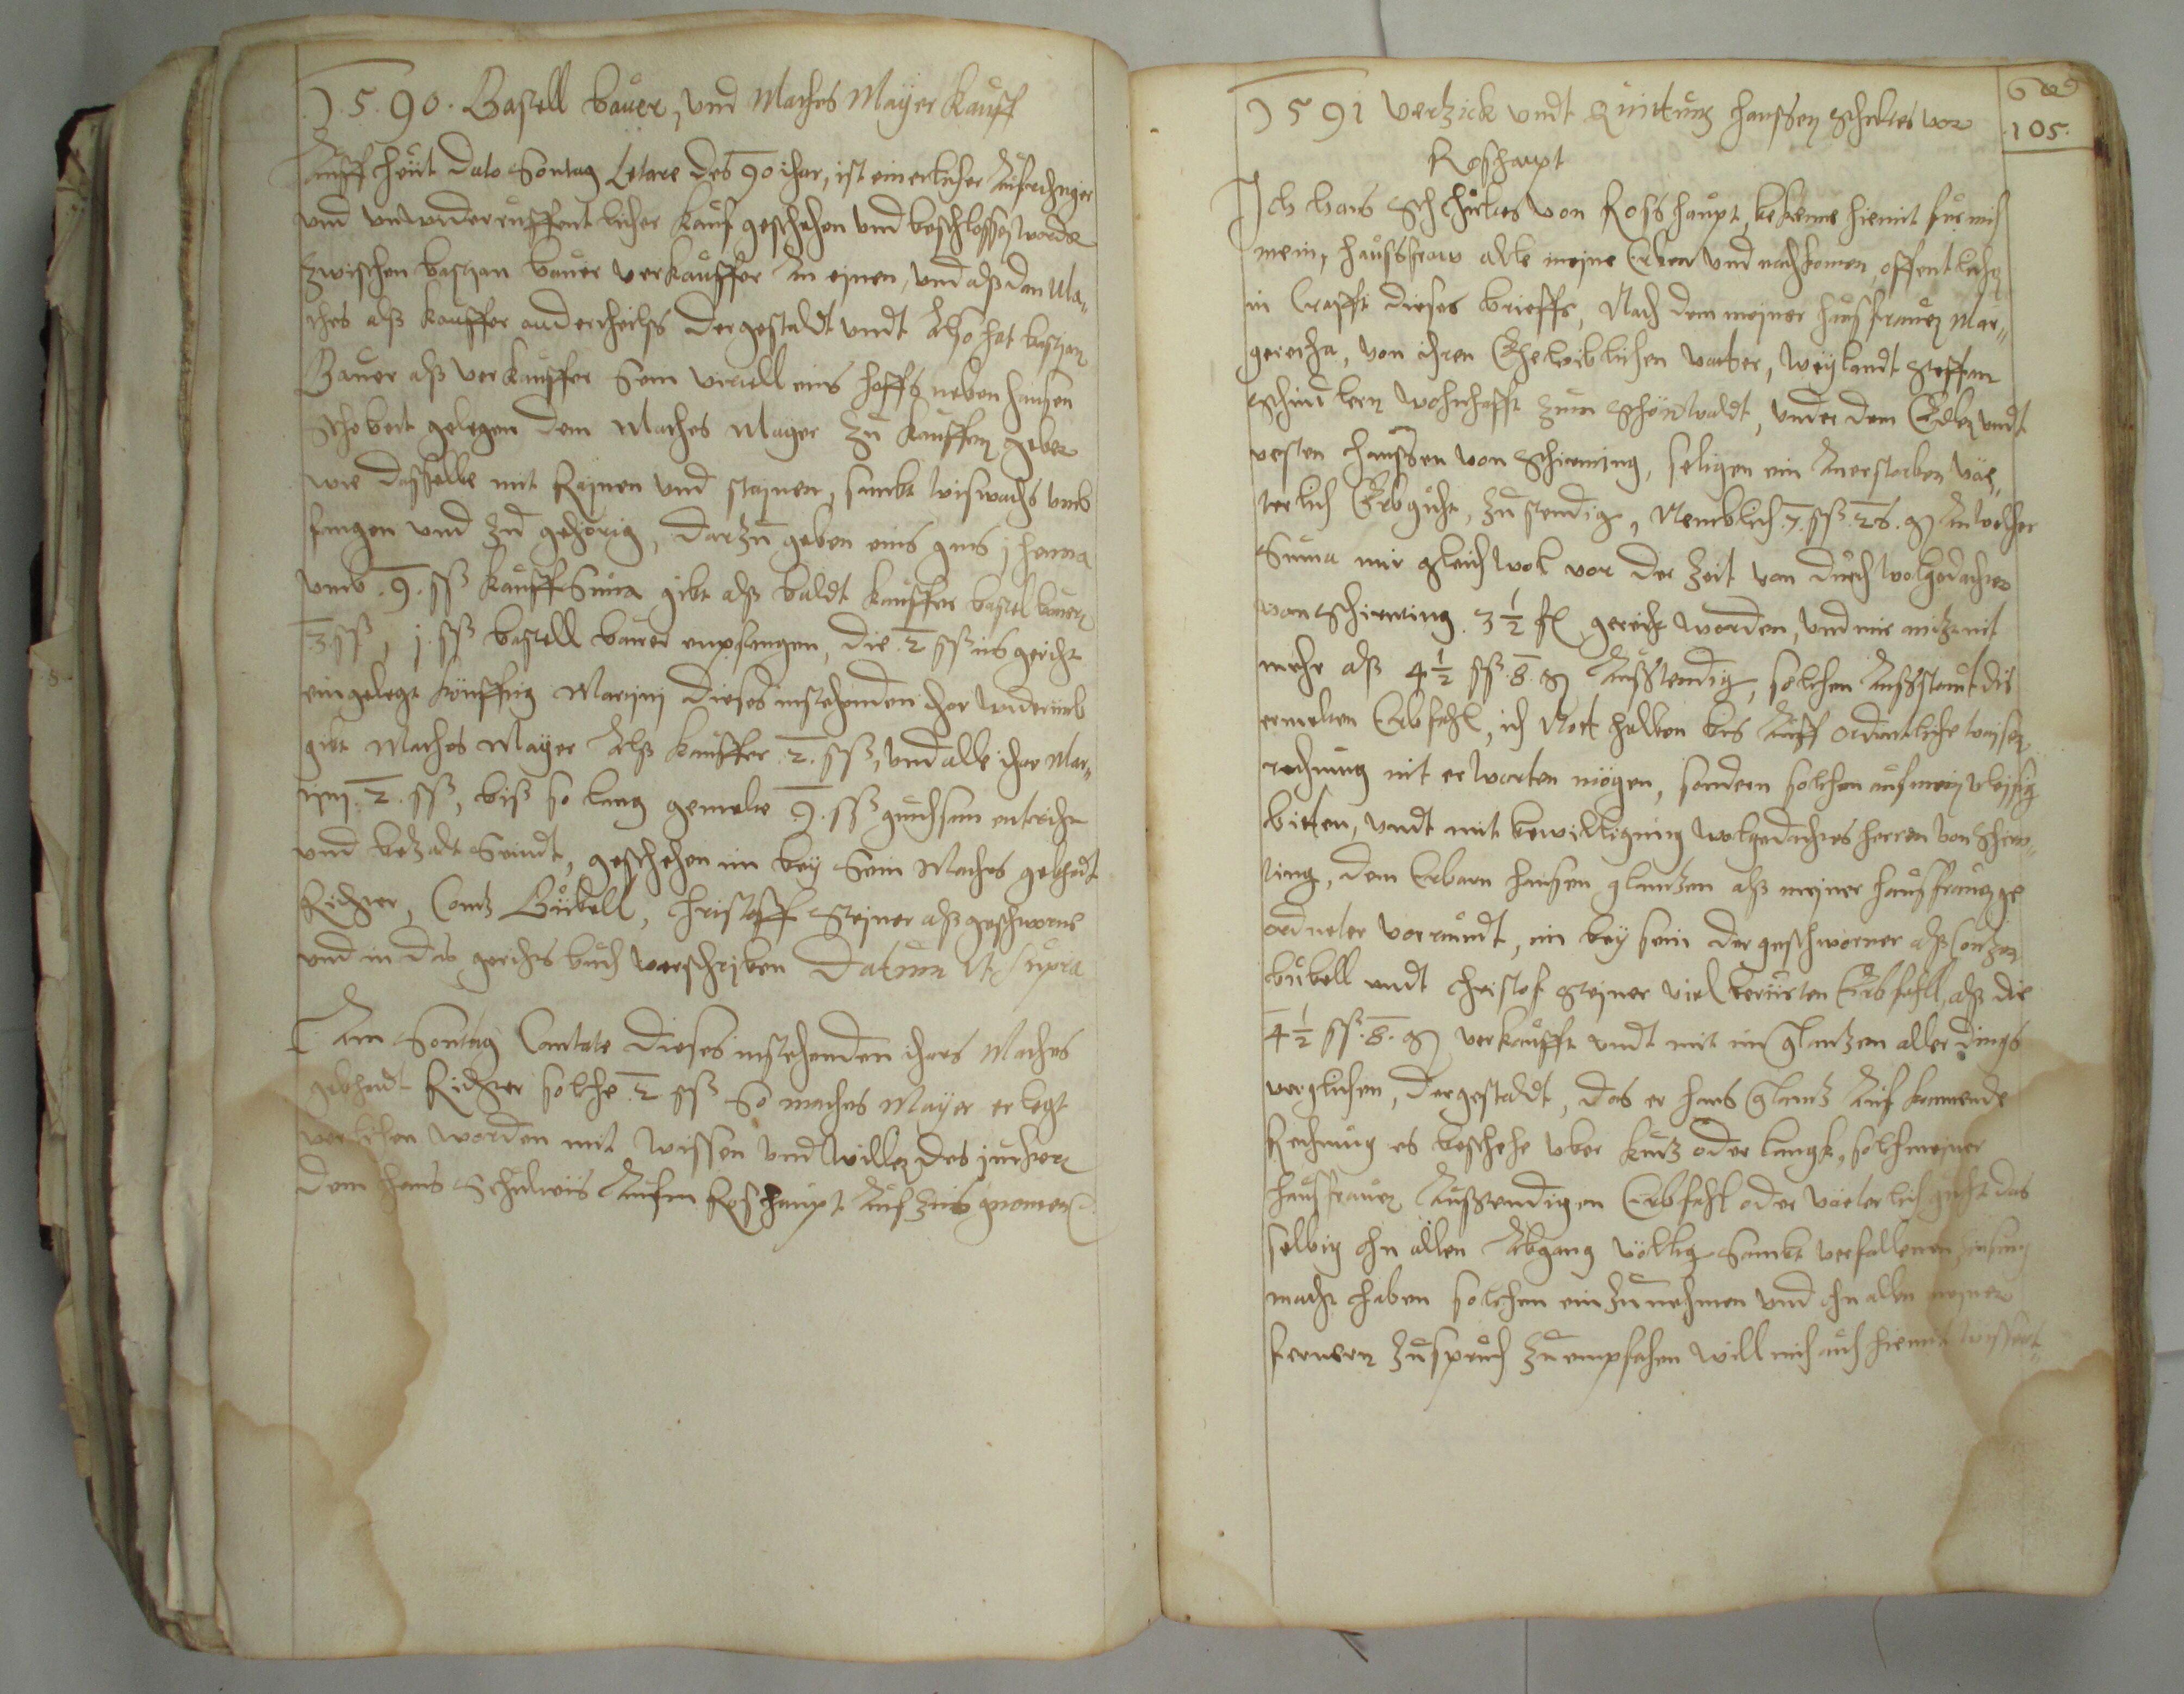 1.5.90. Bastell baur, und Mathes Mayer Kauff
Auff heut dato Sontag Letare des 90 ihar, ist ein erlicher Aufrichtiger
und unwiderruffentlicher Kauf geschehen und beschlossen worden
zwischen bastian baur verkauffer An einen, und alß dan Ma¬
thes alß kauffer andertheilss dergestaldt undt Also hat bastian
Baur alß verkauffer Sein virtell eins hoffs neben hansen
Schobert gelegen dem Mathes Mayer zu kauffen geben
wie dasselbe mit Rainen und stainen, sambt wißwachs umb
fangen und zu gehorig, darzu geben
umb .9. ßß Kauff Suma gibt alß baldt kauffer bastel baurn
.3. ßß, j. ßß bastell baur empfangen, die .2. ßß ins gericht
eingelegt künfftig Martini dieses instehenden ihar widerumb
gibt Mathes Mayer Alß kauffer .2. ßß, und alle ihar Mar¬
tini .2. ßß, biß so lang gemelte .9. ßß gnuchsam entricht
und bezalt Seindt, geschehen im bey Sein Mathes gebhadt
Richter, Contz Bübell, Christoff Steiner alß geschworne
und in das gerichts buch verschriben Datum Ut supra
Am Sontag Cantate dieses instehenden ihars Mathes
gebhardt Richter solche .2. ßß So mathes Mayer erlegt
verlihen worden mit wissen und willen des junckern
dem hans Schultes Aufm Roshaupt Auf zins gnomen
105.
1591 Verzick undt Quittung hanssen Schultes vor
Roshaupt
Ich hans Schultes von Rosshaupt, bekenne hiemit für mich
mein, haussfraw alle meine Erben und nachkomen, offentlichen
in Crafft dieses brieffs, Nach dem meiner hausfrauen Mar¬
geretha, von ihren Eheleiblichen vatter, weylandt Steffan
wohnhafft zum Schönwaldt, under dem Edlen undt
vesten hanssen von Schirnting, seligen ein Anerstorben väe¬
terlich Erbguht, zustendig, Nemblich .7. ßß .26. g An welcher
Suma mir gleichwol vor der Zeit von durch wolgedachten
von Schirnting 3 1/2 fl gereicht worden, und mir mit
mehr alß 4 1/2 ßß .8. g Außstendig, solchen Außstandt dis
ermelten Erbfahl, ich Nott halben bis Auff ordentliche weisen
rechnung nit erwarten mögen, sondern solchen auf mein vleissig
bitten, undt mit bewilligung wolgedachtes herren von Schirn¬
ting, dem Erbarn hansen glantzen alß meiner hausfrauen ge
ordneter vormundt, im bey sein der geschwornen alß Contzen
bübell undt Christof Steiner viel berürten Erbfahll, alß die
4 1/2 ßß .8. g verkaufft undt mit im Glantzen aller dings
verglichen, dergestaldt, das er hans Glantz Auf kommende
Rechnung es beschehe uber kurtz oder langk, solch meiner
hausfrauen Außstendigen Erbfahl oder väeterlich guht das
selbig ohn allen Abgang völlig Sambt verfallenen zinsung
macht haben solchen ein zu nehmen und ohn allen meiner
fernern zuspruch zu empfahen will mich auch hiemit wissent¬